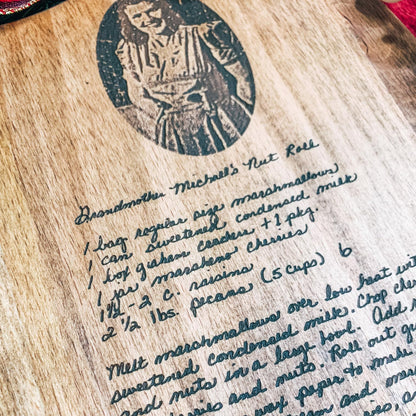 Grandmother Michael's Nut Roll
1 bag regular size marshmallows
1 can sweetened condensed milk
1 box graham crackers + 1 pkg.
1 jar maraschino cherries
1 1/2 - 2 c. raisins
2 1/2 lbs. pecans (5 cups) 6
Melt marshmallows over low heat with
sweetened condensed milk. Chop che
and nuts in a large bowl. Add
and nuts. Roll out g
wax paper to make
and